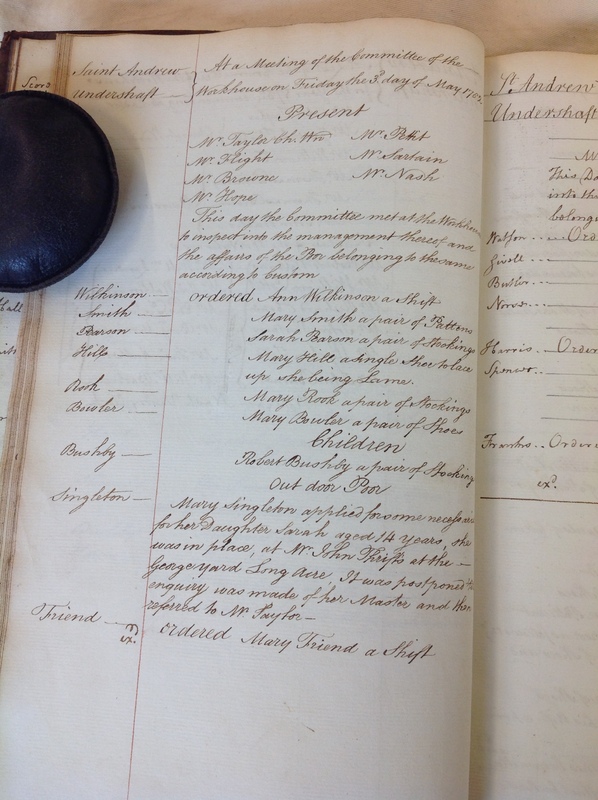 Saint Andrew Undershaft } At a Meeting of the Committee of the
Workhouse on Friday the 3d day of May
Present
Mr. Taylor Ch. Wn Mr. Pettit
Mr. Flight Mr. Sartain
Mr. Browne Mr. Nash
Mr. Hope
This day the Committee met at the Workhouse
to inspect into the management thereof and
the affairs of the Poor belonging to the same
according to Custom
Wilkinson ordered Ann Wilkinson a Shift
Smith Mary Smith a pair of Pattens
Barson Sarah Barson a pair of Stockings
Hill Mary Hill a single Shoe to lace
up she being Lame.
Rook Mary Rook a pair of Stockings
Bowler Mary Bowler a pair of Shoes
Children
Bushby Robert Bushby a pair of Stocking
Out door Poor
Singleton Mary Singleton applied for some necessaries
for her Daughter Sarah aged 14 Years, she
was in place, at Mr. John Thrifts at the
George Yard Long Acre, It was postponed
enquiry was made of her Master and then
referred to Mr. Taylor
Friend ordered Mary Friend a Shift
exd.
St. Andrew
Undershaft
This Da
into the
belong
Watson Ord
Butler
Norris
Harris Order
Spencer
Franks Order
exd.